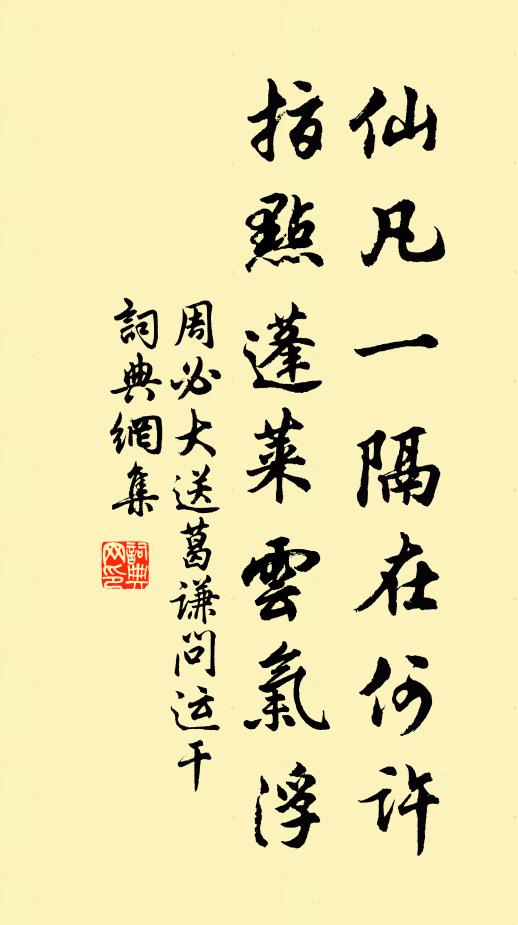 仙凡一隔在何許
指點蓬萊雲氣浮
周必大送葛谦问运干
詞典網集
詞典网印